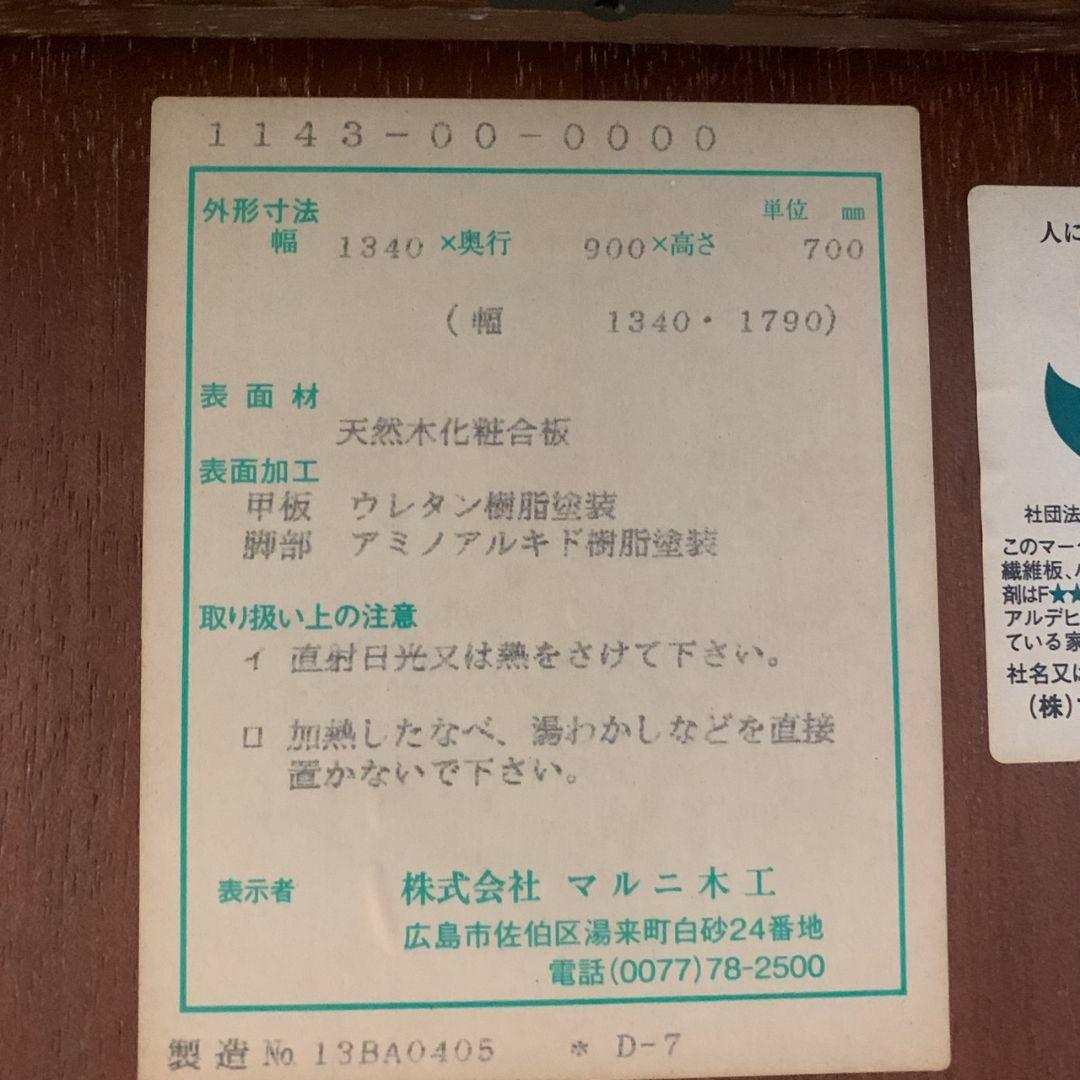 1143-00-0000
外形寸法 単位 mm
幅 1340 ×奥行 900 ×高さ 700
(幅 1340・1790)
表面材
天然木化粧合板
表面加工
甲板 ウレタン樹脂塗装
脚部 アミノアルキド樹脂塗装
取り扱い上の注意
イ 直射日光又は熱をさけて下さい。
ロ 加熱したなべ、湯わかしなどを直接
置かないで下さい。
表示者 株式会社 マルニ木工
広島市佐伯区湯来町白砂24番地
電話(0077)78-2500
製造 No. 13BA0405 * D-7
人に
社団法
このマーク
繊維板、
剤はF★★
アルデヒ
ている家
社名又は
(株)マ